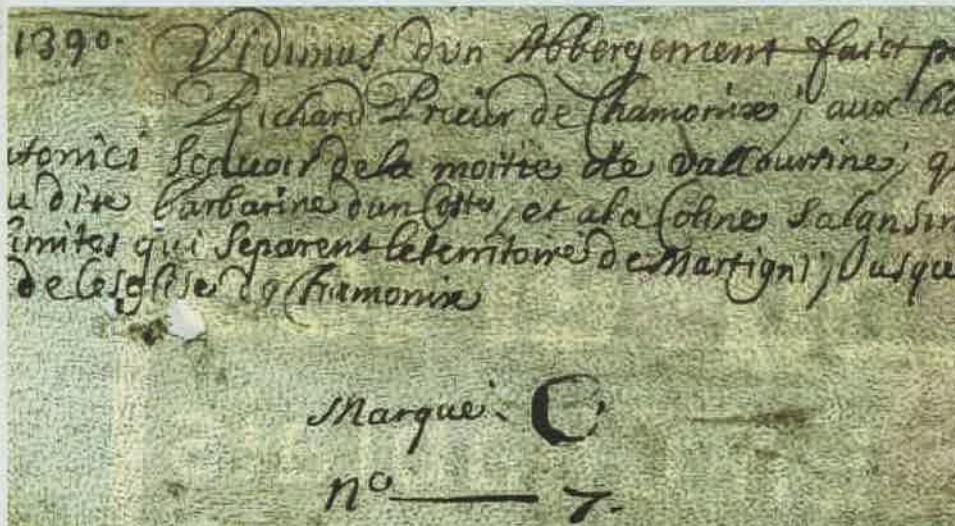 1390. Vidimus dun Abbergement faict p
Richard Prieur de Chamonixe, aux ho
utonici Scavoir dela moitie de vallourſine, q
u dite barbarine dun Costes, et ala Coline Salansin
limites qui Separent leterritoire de Martigni, Jusque
de lesglise de Chamonixe
Marque. C
n° — 7.